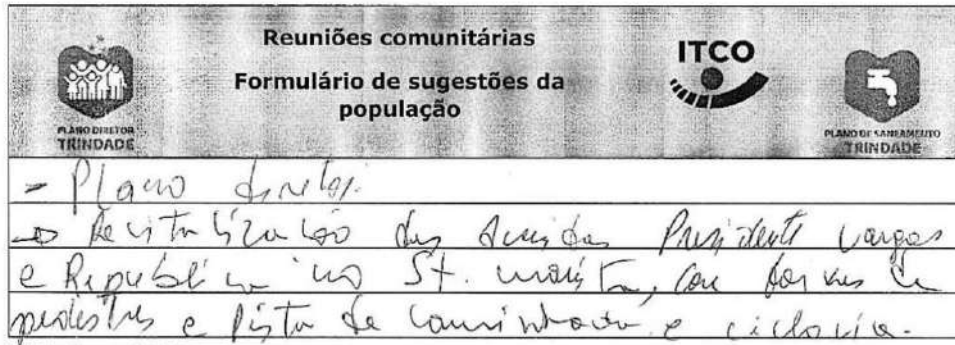 Reuniões comunitárias
Formulário de sugestões da
população
PLANO DIRETOR
TRINDADE
ITCO
PLANO DE SANEAMENTO
TRINDADE
- Plano diretor.
→ Revitalização das Avenidas Presidente Vargas
e República no St. Maysa, com faixas de
pedestres e pista de caminhada e ciclovia.